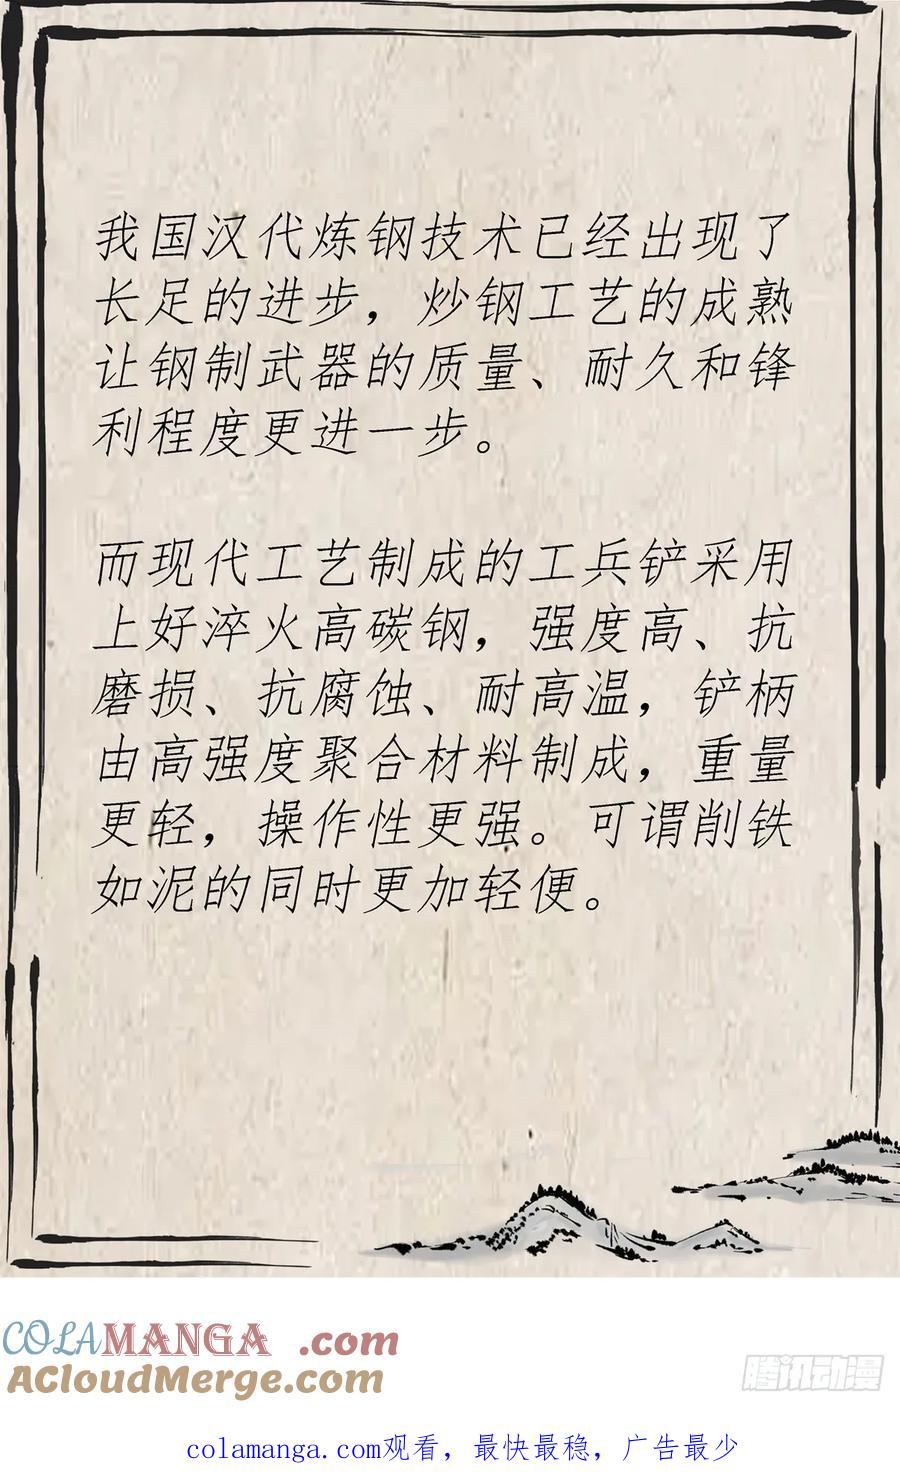 我国汉代炼钢技术已经出现了
长足的进步，炒钢工艺的成熟
让钢制武器的质量、耐久和锋
利程度更进一步。
而现代工艺制成的工兵铲采用
上好淬火高碳钢，强度高、抗
磨损、抗腐蚀、耐高温，铲柄
由高强度聚合材料制成，重量
更轻，操作性更强。可谓削铁
如泥的同时更加轻便。
COLAMANGA.com
ACloudMerge.com
腾讯动漫
colamanga.com观看，最快最稳，广告最少